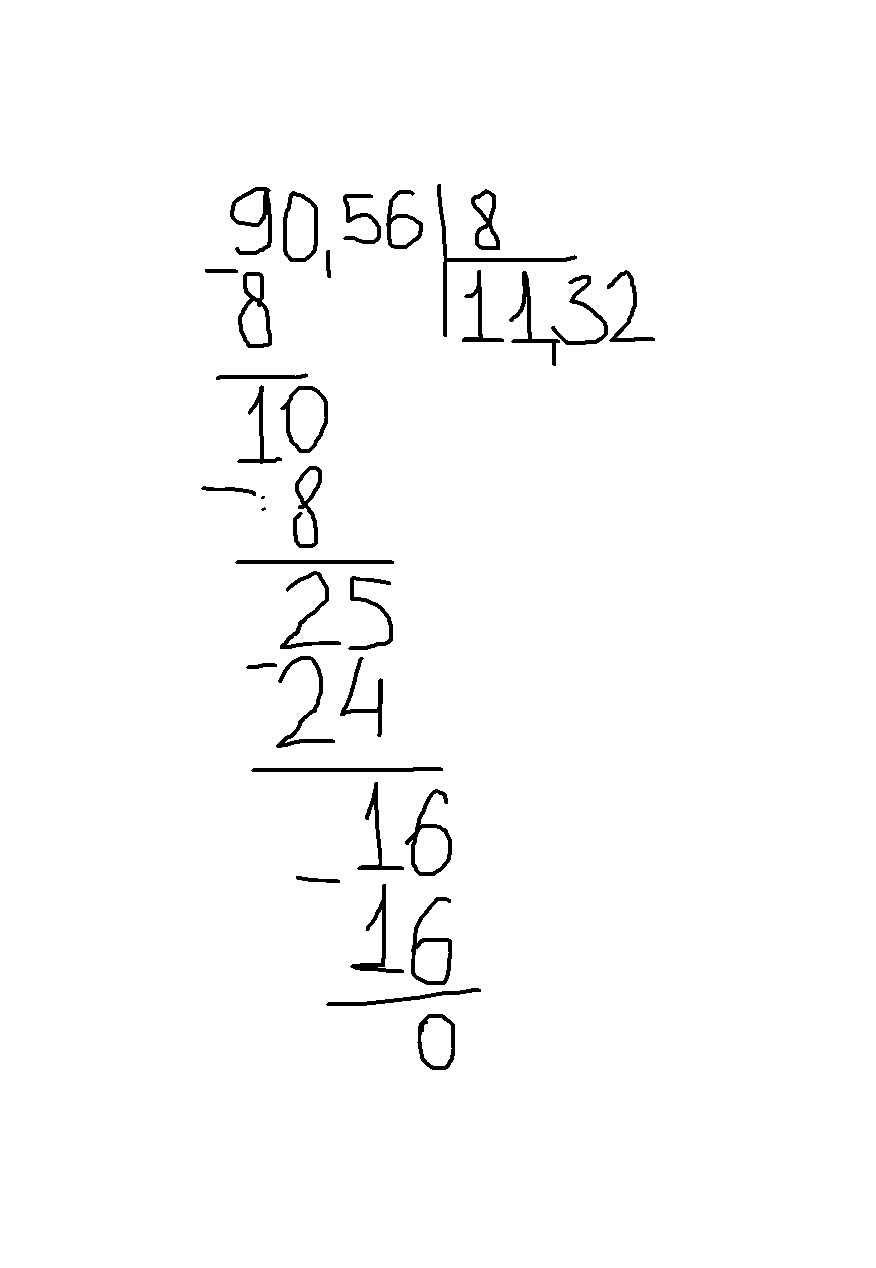 90,56 8
8 11,32
10
8
25
24
16
16
0